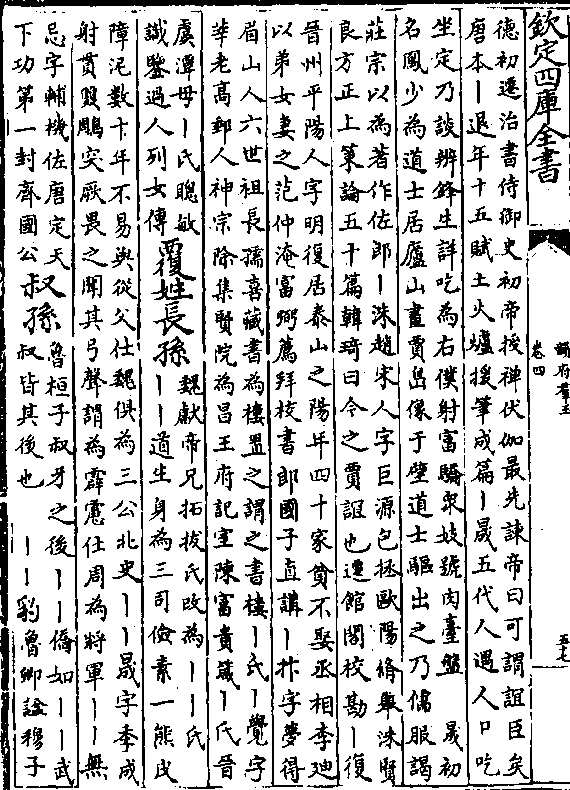 欽定四庫全書
韻府羣玉
卷四
五十七
德初遷治書侍御史初帝授禪伏伽最先諫帝曰可謂誼臣矣
唐本丨退年十五賦土火爐援筆成篇丨晟五代人遇人口吃
坐定乃談辨鋒生詳吃為右僕射富驕衆妓號肉臺盤 晟初
名鳳少為道士居廬山畫賈島像于壁道士驅出之乃儒服謁
莊宗以為著作佐郎丨洙趙宋人字巨源包拯歐陽脩舉洙賢
良方正上策論五十篇韓琦曰今之賈誼也遷館閣校勘丨復
晉州平陽人字明復居泰山之陽年四十家貧不娶丞相李廸
以弟女妻之范仲淹富弼薦拜校書郎國子直講丨抃字夢得
眉山人六世祖長孺喜藏書為樓置之謂之書樓丨氏丨覺字
莘老高郵人神宗除集賢院為昌王府記室陳富貴箴丨氏晉
虞潭母丨氏聰敏
識鑒過人列女傳
覆姓長孫
魏獻帝兄拓拔氏改為丨丨氏
丨丨道生身為三司儉素一熊皮
障泥數十年不易與從父仕魏俱為三公北史丨丨晟字季成
射貫雙鵰突厥畏之聞其弓聲謂為霹靂仕周為將軍丨丨無
忌字輔機佐唐定天
下功第一封齊國公
叔孫
魯桓子叔牙之後丨丨僑如丨丨武
叔皆其後也 丨丨豹魯卿諡穆子